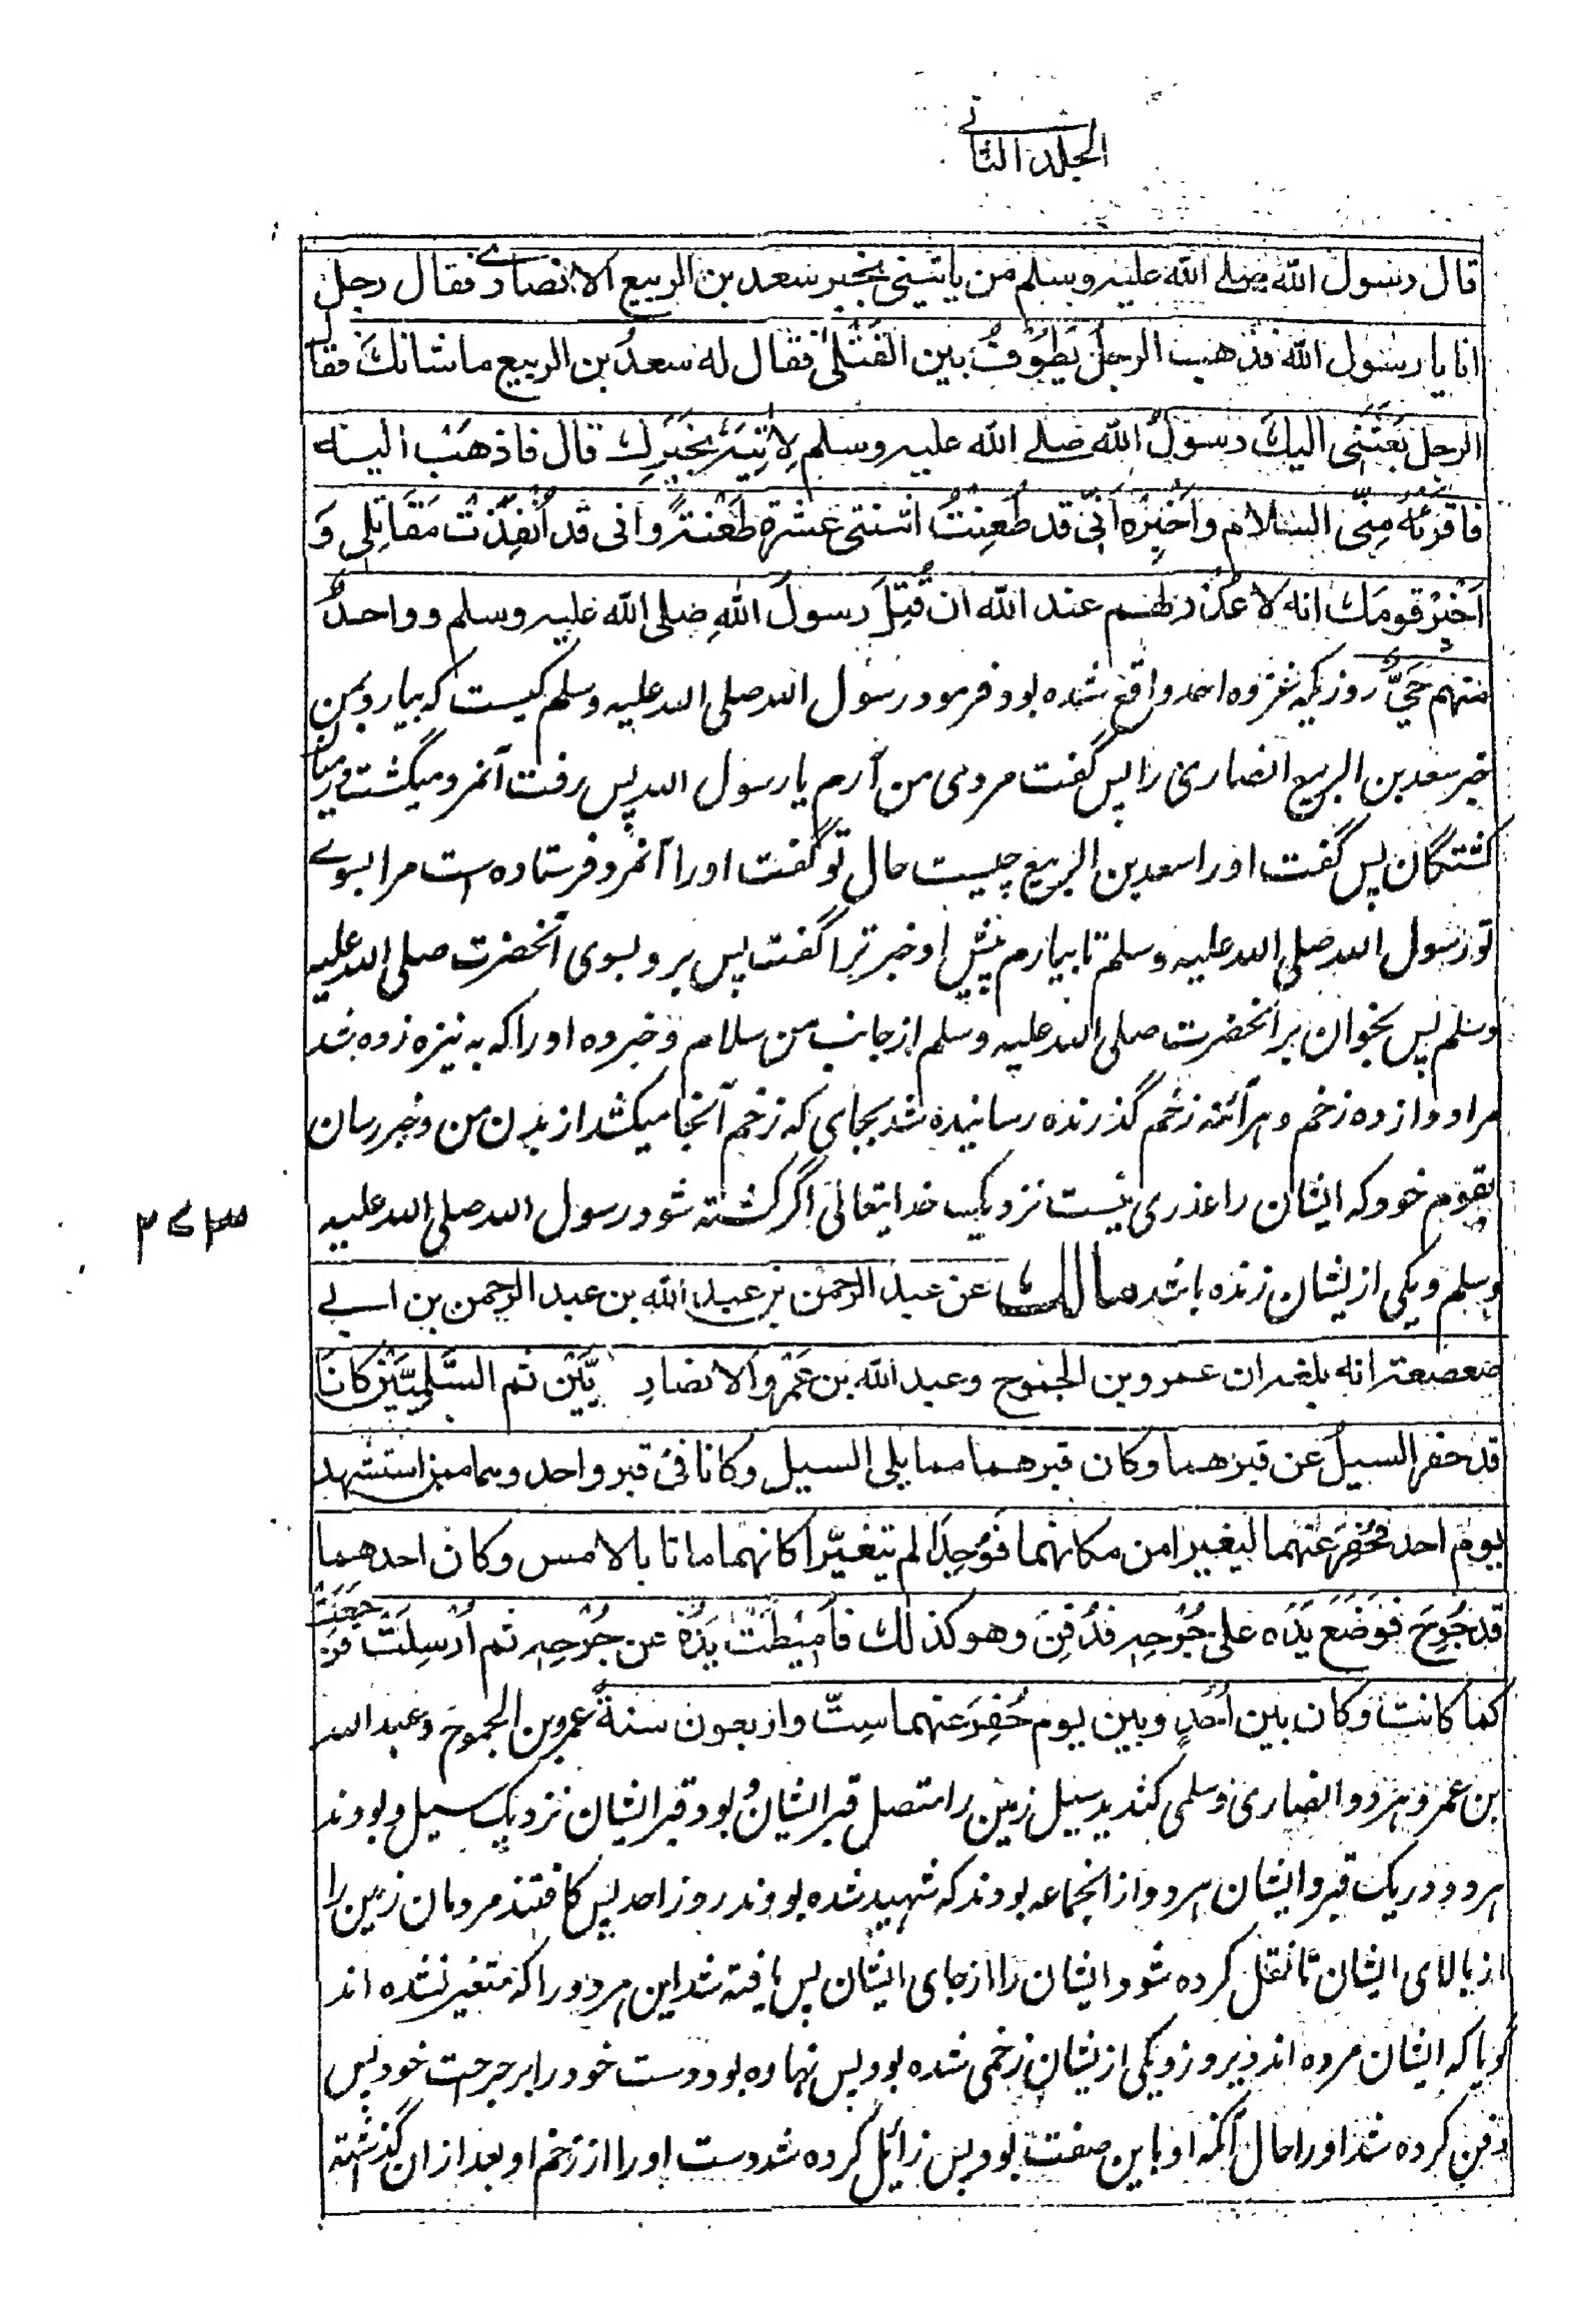 الجلد الثانی
قال رسول الله صلے الله عليه وسلم من ياتينی بخبر سعد بن الربيع الانصاری فقال رجل
انا يا رسول الله فذهب الرجلُ يَطُوْفُ بين القَتْلىٰ فقال له سعدُ بن الربيع ما شانك فقال
الرجل بَعَثَنِی اليكَ رسولُ الله صلے الله عليه وسلم لِاٰتِيَهٗ بخَبَرِك قال فاذهَبْ اليه
فاقرَئْهُ مِنِّی السلام واَخْبِرْه اَنِّی قد طُعِنْتُ اثنتی عشْرة طَعْنةً وانی قد اُنْفِذَتْ مَقَاتِلِی وَ
اَخْبِرْ قومَك انه لا عُذْرَ لهم عند الله ان قُتِلَ رسولُ اللهِ صلی الله عليه وسلم وواحدٌ
منهم حَیٌّ روزیکه غزوه احد واقع شده بود فرمود رسول الله صلی الله علیه وسلم کیست که بیارد بمن
خبر سعد بن الربیع انصاری را پس گفت مردی من آرم یا رسول الله پس رفت آنمرد میگشت در میان
کشتگان پس گفت او را سعد بن الربیع چیست حال تو گفت او را آنمرد فرستاده است مرا بسوے
تو رسول الله صلی الله علیه وسلم تا بیارم پیش او خبر ترا گفت پس برو بسوی آنحضرت صلی الله علیه
وسلم پس بخوان بر آنحضرت صلی الله علیه وسلم از جانب من سلام و خبر ده او را که به نیزه زده شد
مرا دوازده زخم و هرآئنه زخم گذرنده رسانیده شد بجای که زخم آنجا میکشد از بدن من و خبر رسان
بقوم خود که ایشان را عذری نیست نزدیک خدایتعالی اگر کشته شود رسول الله صلی الله علیه
وسلم و یکی ازیشان زنده باشد مالك عن عبد الرحمن بن عبد الله بن عبد الرحمن بن ابے
صعصعة انه بلغه ان عمرو بن الجموح وعبد الله بن عَمْرٍو الانصارِيَّيْن ثم السَّلَمِيَّيْن كانَا
قد حفر السيلُ عن قبرهما وكان قبرهما مما يلی السيل وكانا فی قبر واحد وهما ممن استشهد
يوم احد فحُفِرَ عنهما ليغيرا من مكانهما فوُجِدَا لم يتغيّرا كانهما ماتا بالامس وكان احدهما
قد جُرِحَ فوَضَعَ يَدَه علی جُرْحِه فدُفِنَ وهو كذلك فاُمِيْطَتْ يَدُهٗ عن جُرْحِه ثم اُرْسِلَتْ فرَجَعَتْ
كما كانت وكان بين اُحُدٍ وبين يوم حُفِرَ عنهما سِتٌّ واربعون سنةً عمرو بن الجموح و عبد الله
بن عمرو هردو انصاری و سلمی کندید سیل زمین را متصل قبر ایشان و بود قبر ایشان نزدیک سیل و بودند
هر دو در یک قبر و ایشان هر دو از انجماعه بودند که شهید شده بودند روز احد پس کافتند مردمان زمین را
از بالای ایشان تا نقل کرده شود ایشان را از جای ایشان پس یافته شد این هر دو را که متغیر نشده اند
گویا که ایشان مرده اند دیروز و یکی ازیشان زخمی شده بود پس نهاده بود دست خود را بر جرحت خود پس
دفن کرده شد او را حال آنکه او باین صفت بود پس زائل کرده شد دست او را از زخم او بعد ازان گذشته
۲۷۳